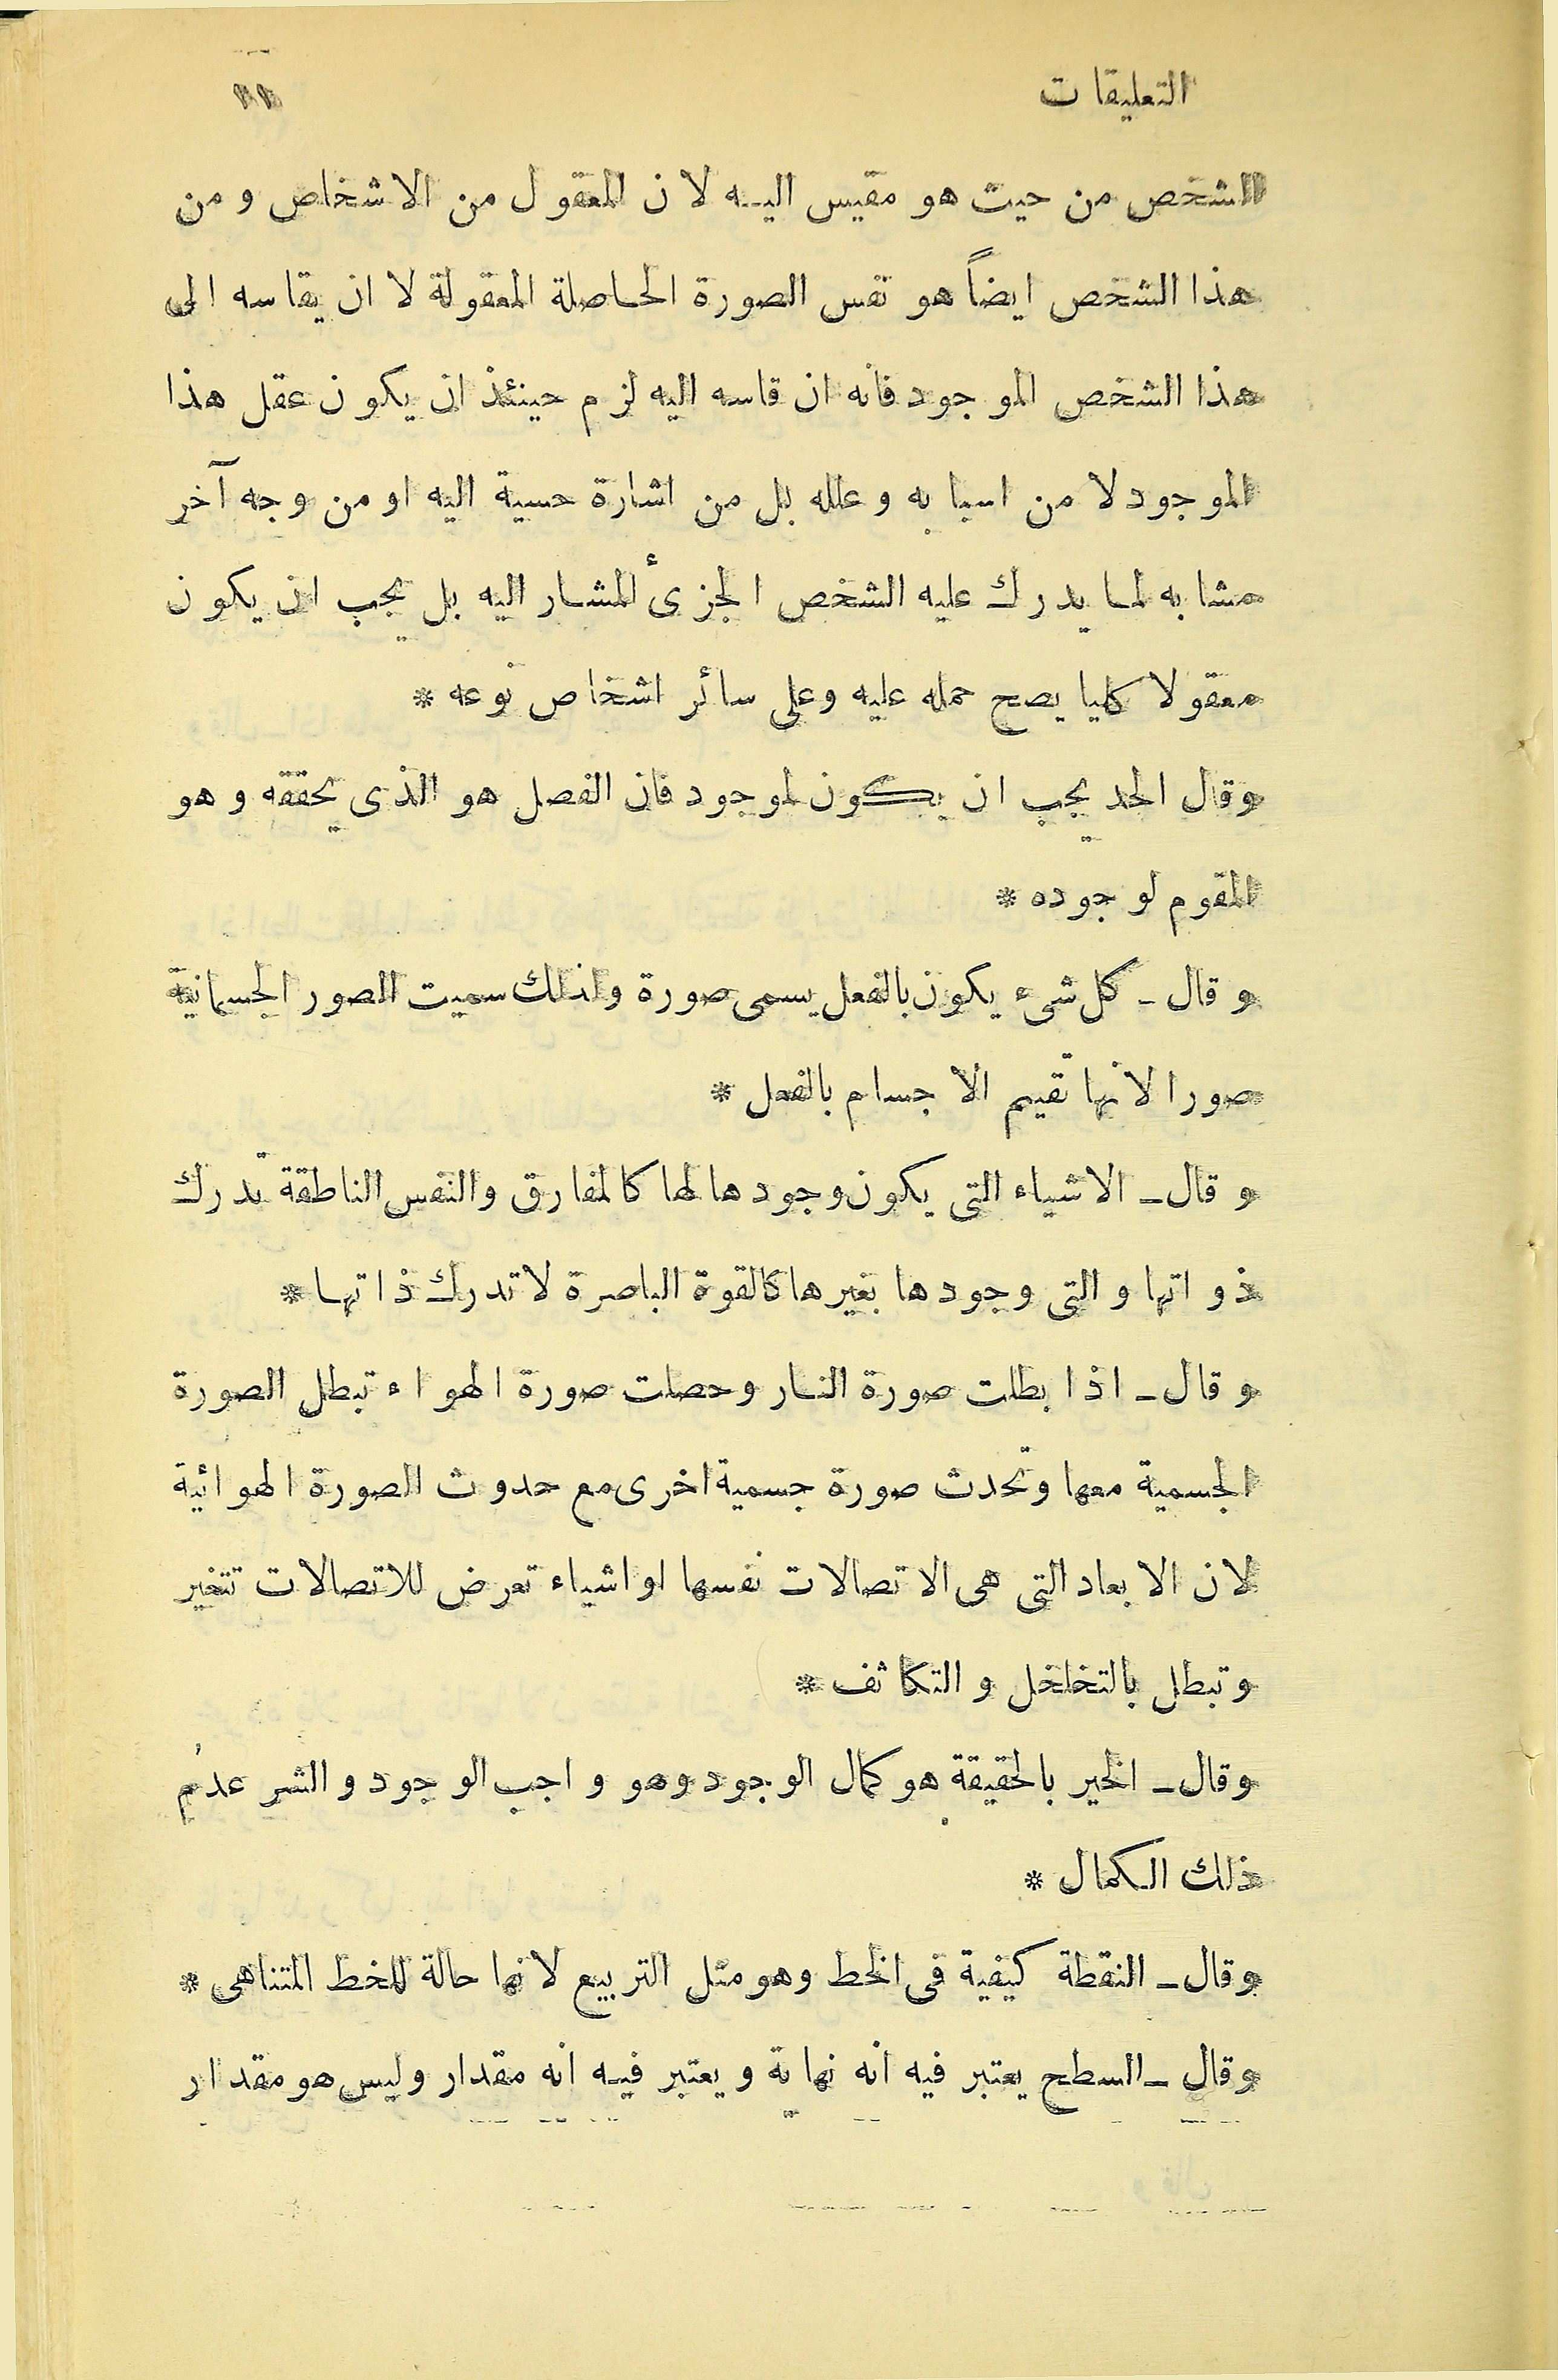 التعليقات ١١
الشخص من حيث هو مقيس اليه لان المعقول من الاشخاص ومن
هذا الشخص ايضاً هو نفس الصورة الحاصلة المعقولة لا ان يقاسه الى
هذا الشخص الموجود فانه ان قاسه اليه لزم حينئذ ان يكون عقل هذا
الموجود لا من اسبابه وعلله بل من اشارة حسية اليه او من وجه آخر
مشابه لما يدرك عليه الشخص الجزئ المشار اليه بل يجب ان يكون
معقولا كليا يصح حمله عليه وعلى سائر اشخاص نوعه *
وقال الحد يجب ان يكون لموجود فان الفصل هو الذى يحققه وهو
المقوم لوجوده *
وقال ـ كل شىء يكون بالفعل يسمى صورة ولذلك سميت الصور الجسمانية
صورا لانها تقيم الاجسام بالفعل *
وقال ـ الاشياء التى يكون وجودها لها كالمفارق والنفس الناطقة تدرك
ذواتها والتى وجودها بغيرها كالقوة الباصرة لا تدرك ذاتها *
وقال ـ اذا بطلت صورة النار وحصلت صورة الهواء تبطل الصورة
الجسمية معها وتحدث صورة جسمية اخرى مع حدوث الصورة الهوائية
لان الابعاد التى هى الاتصالات نفسها او اشياء تعرض للاتصالات تتغير
وتبطل بالتخلخل والتكاثف *
وقال ـ الخير بالحقيقة هو كمال الوجود وهو واجب الوجود والشر عدم
ذلك الكمال *
وقال ـ النقطة كيفية فى الخط وهو مثل التربيع لانها حالة للخط المتناهى *
وقال ـ السطح يعتبر فيه انه نهاية ويعتبر فيه انه مقدار وليس هو مقدار